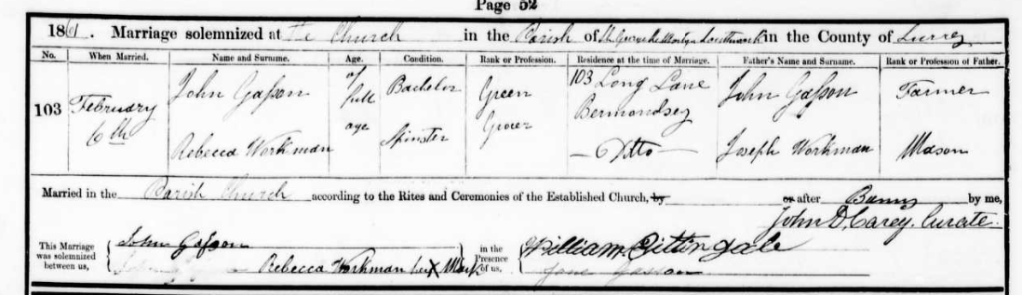 Page 52
1861. Marriage solemnized at The Church in the Parish of St George the Martyr Southwark in the County of Surrey
No. When Married. Name and Surname. Age. Condition. Rank or Profession. Residence at the time of Marriage. Father's Name and Surname. Rank or Profession of Father.
103 February 6th John Gasson of full age Bachelor Green Grocer 103 Long Lane Bermondsey John Gasson Farmer
Rebecca Workman Spinster Ditto Joseph Workman Mason
Married in the Parish Church according to the Rites and Ceremonies of the Established Church, by or after Banns by me,
John D. Carey. Curate.
This Marriage was solemnized between us, John Gasson in the Presence of us, William Pittingale
Rebecca Workman her X Mark Jane Gasson